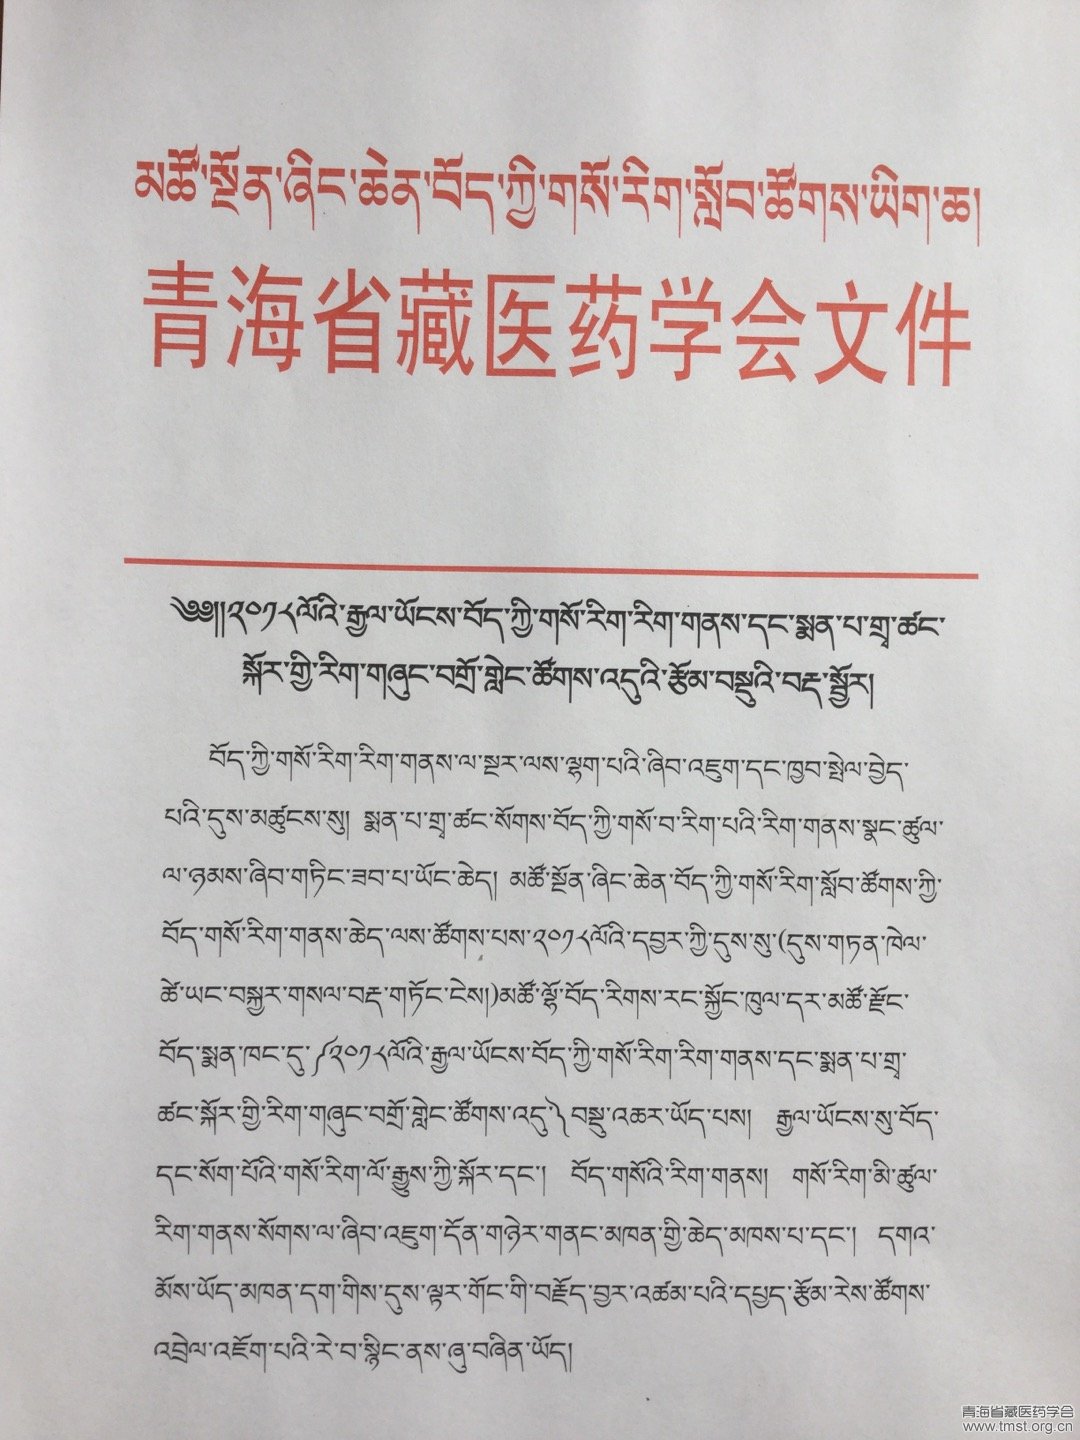 མཚོ་སྔོན་ཞིང་ཆེན་བོད་ཀྱི་གསོ་རིག་སློབ་ཚོགས་ཡིག་ཆ།
青海省藏医药学会文件
༄༅།།༢༠༡༨ལོའི་རྒྱལ་ཡོངས་བོད་ཀྱི་གསོ་རིག་རིག་གནས་དང་སྨན་པ་གྲྭ་ཚང་
སྐོར་གྱི་རིག་གཞུང་བགྲོ་གླེང་ཚོགས་འདུའི་རྩོམ་བསྡུའི་བརྡ་སྦྱོར།
བོད་ཀྱི་གསོ་རིག་རིག་གནས་ལ་སྔར་ལས་ལྷག་པའི་ཞིབ་འཇུག་དང་ཁྱབ་སྤེལ་བྱེད་
པའི་དུས་མཚུངས་སུ། སྨན་པ་གྲྭ་ཚང་སོགས་བོད་ཀྱི་གསོ་བ་རིག་པའི་རིག་གནས་སྣང་ཚུལ་
ལ་ཉམས་ཞིབ་གཏིང་ཟབ་པ་ཡོང་ཆེད། མཚོ་སྔོན་ཞིང་ཆེན་བོད་ཀྱི་གསོ་རིག་སློབ་ཚོགས་ཀྱི་
བོད་གསོ་རིག་གནས་ཆེད་ལས་ཚོགས་པས་༢༠༡༨ལོའི་དབྱར་ཀྱི་དུས་སུ་(དུས་གཏན་ཁེལ་
ཚེ་ཡང་བསྐྱར་གསལ་བརྡ་གཏོང་ངེས།)མཚོ་ལྷོ་བོད་རིགས་རང་སྐྱོང་ཁུལ་དར་མཚོ་རྫོང་
བོད་སྨན་ཁང་དུ་༼༢༠༡༨ལོའི་རྒྱལ་ཡོངས་བོད་ཀྱི་གསོ་རིག་རིག་གནས་དང་སྨན་པ་གྲྭ་
ཚང་སྐོར་གྱི་རིག་གཞུང་བགྲོ་གླེང་ཚོགས་འདུ༽བསྡུ་འཆར་ཡོད་པས། རྒྱལ་ཡོངས་སུ་བོད་
དང་སོག་པོའི་གསོ་རིག་ལོ་རྒྱུས་ཀྱི་སྐོར་དང་། བོད་གསོའི་རིག་གནས། གསོ་རིག་མི་ཚུལ་
རིག་གནས་སོགས་ལ་ཞིབ་འཇུག་དོན་གཉེར་གནང་མཁན་གྱི་ཆེད་མཁས་པ་དང་། དགའ་
མོས་ཡོད་མཁན་དག་གིས་དུས་ལྟར་གོང་གི་བརྗོད་བྱར་འཚམ་པའི་དཔྱད་རྩོམ་རེས་ཚོགས་
འབྲེལ་འཇོག་པའི་རེ་བ་སྙིང་ནས་ཞུ་བཞིན་ཡོད།
青海省藏医药学会
www.tmst.org.cn